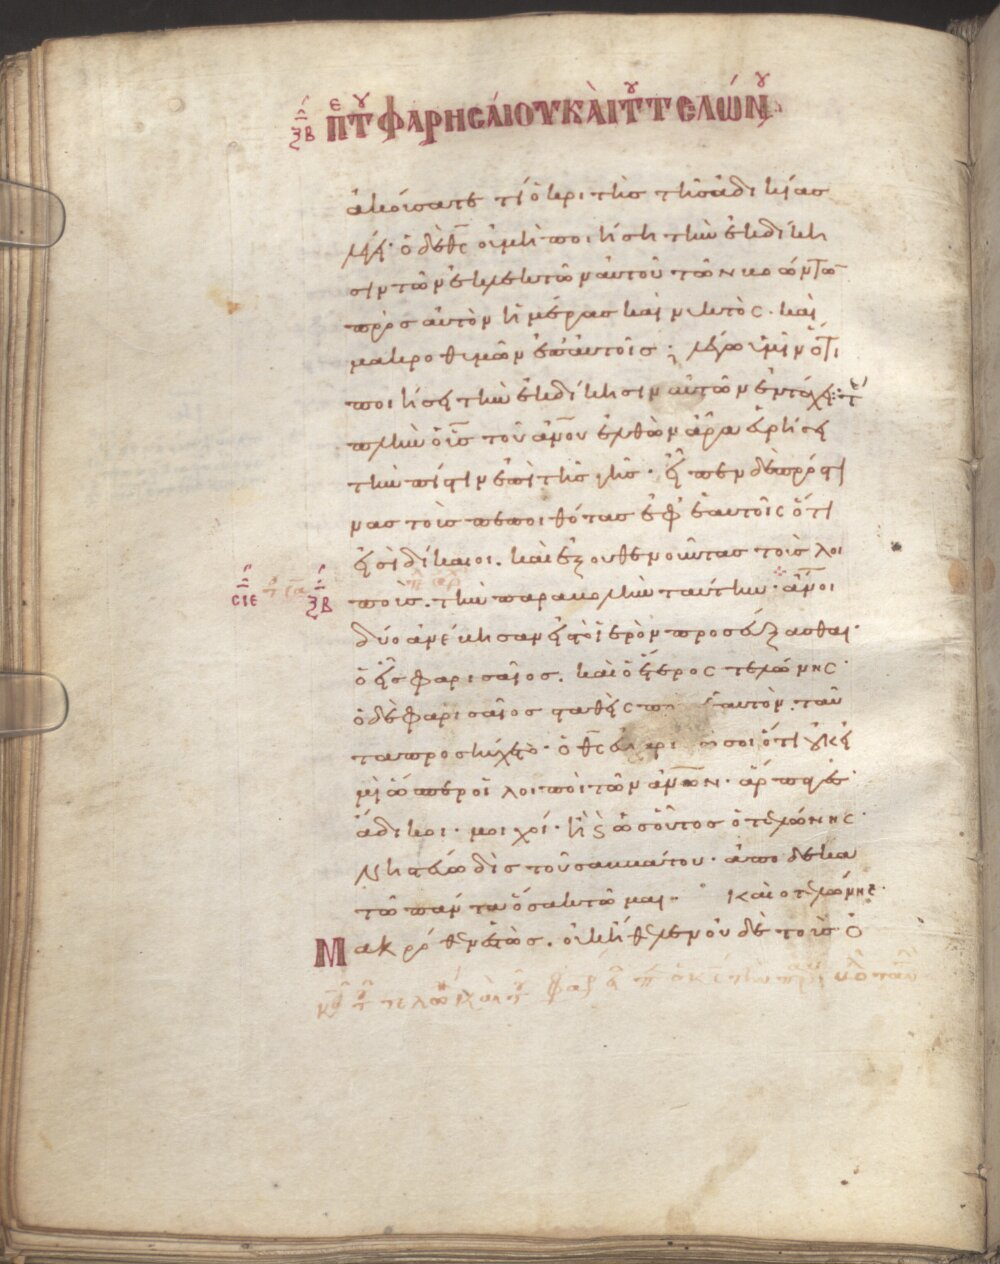 ξβ πτ φαρησαίου κὰι τ τελών
ἀκούσατε τί ὁ κριτὴς τῆς ἀδικίας
λέγει· ὁ δὲ θς οὐ μὴ ποιήση τὴν ἐκδίκη
σιν τῶν ἐκλεκτῶν αὐτοῦ τῶν βοώντων
πρὸς αὐτὸν ἡμέρας καὶ νυκτὸς· καὶ
μακροθυμῶν ἐπ αὐτοῖς· λέγω ὑμῖν ὅτι
ποιήσει τὴν ἐκδίκησιν αὐτῶν ἐν τάχει
πλὴν ὁ υἱς τοῦ ἀνου ἐλθὼν ἄρα εὑρήσει
τὴν πίστιν ἐπὶ τῆς γῆς· εἶπεν δὲ πρός τι
νας τοὺς πεποιθότας ἐφ ἑαυτοῖς ὅτι
εἰσὶ δίκαιοι. καὶ ἐξουθενοῦντας τοὺς λοι
σιε ξβ ποὺς. τὴν παραβολὴν ταύτην· ἄνοι
δύο ἀνέβησαν εἰς τὸ ἱερὸν προσεύξασθαι·
ὁ εἷς φαρισαῖος. καὶ ὁ ἕτερος τελώνης·
ὁ δὲ φαρισαῖος σταθεὶς ἑαυτὸν. ταῦ
τα προσηύχετο· ὁ θς σοι ὅτι οὐκ εἰ
μὶ ὥσπερ οἱ λοιποὶ τῶν ἀνων· ἅρπαγες·
ἄδικοι· μοιχοί· ἢ ς ὡς οὗτος ὁ τελώνης·
νηστεύω δὶς τοῦ σαββάτου· ἀποδεκα
τῶ πάντα ὅσα κτῶμαι· καὶ ὁ τελώνης·
Μακρόθεν ἑστὼς. οὐκ ἤθελεν οὐδὲ τοὺς ὀ